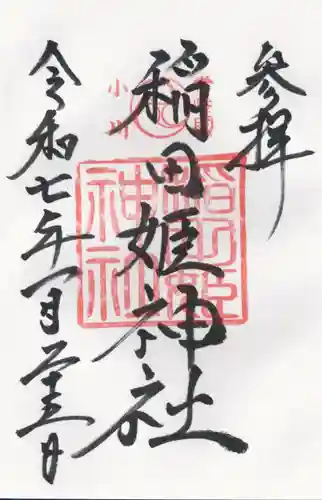 参拝
稲田姫神社
令和七年一月二十三日
稲田姫神社